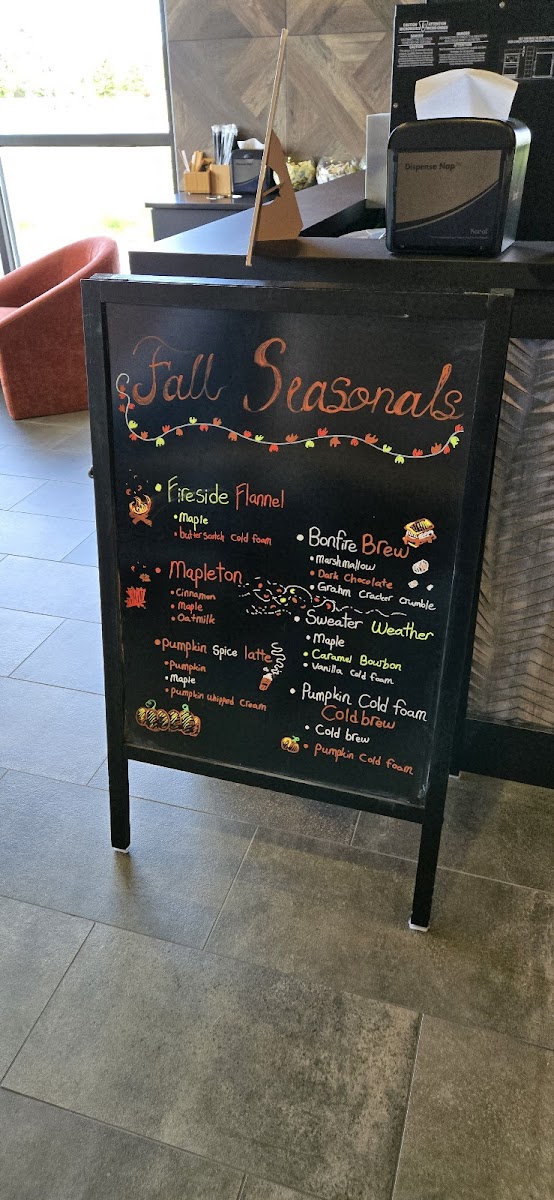 Fall Seasonals
• Fireside Flannel
• Maple
• butterscotch cold foam
• Mapleton
• Cinnamon
• Maple
• Oatmilk
• pumpkin spice latte
• Pumpkin
• Maple
• Pumpkin whipped cream
• Bonfire Brew
• Marshmallow
• Dark Chocolate
• Grahm Cracker Crumble
• Sweater Weather
• Maple
• Caramel Bourbon
• Vanilla cold foam
• Pumpkin Cold foam
Cold brew
• Cold brew
• Pumpkin Cold foam
Dispense Nap
CAUTION
ATTENTION
DANGER
CAUTION
ATTENTION